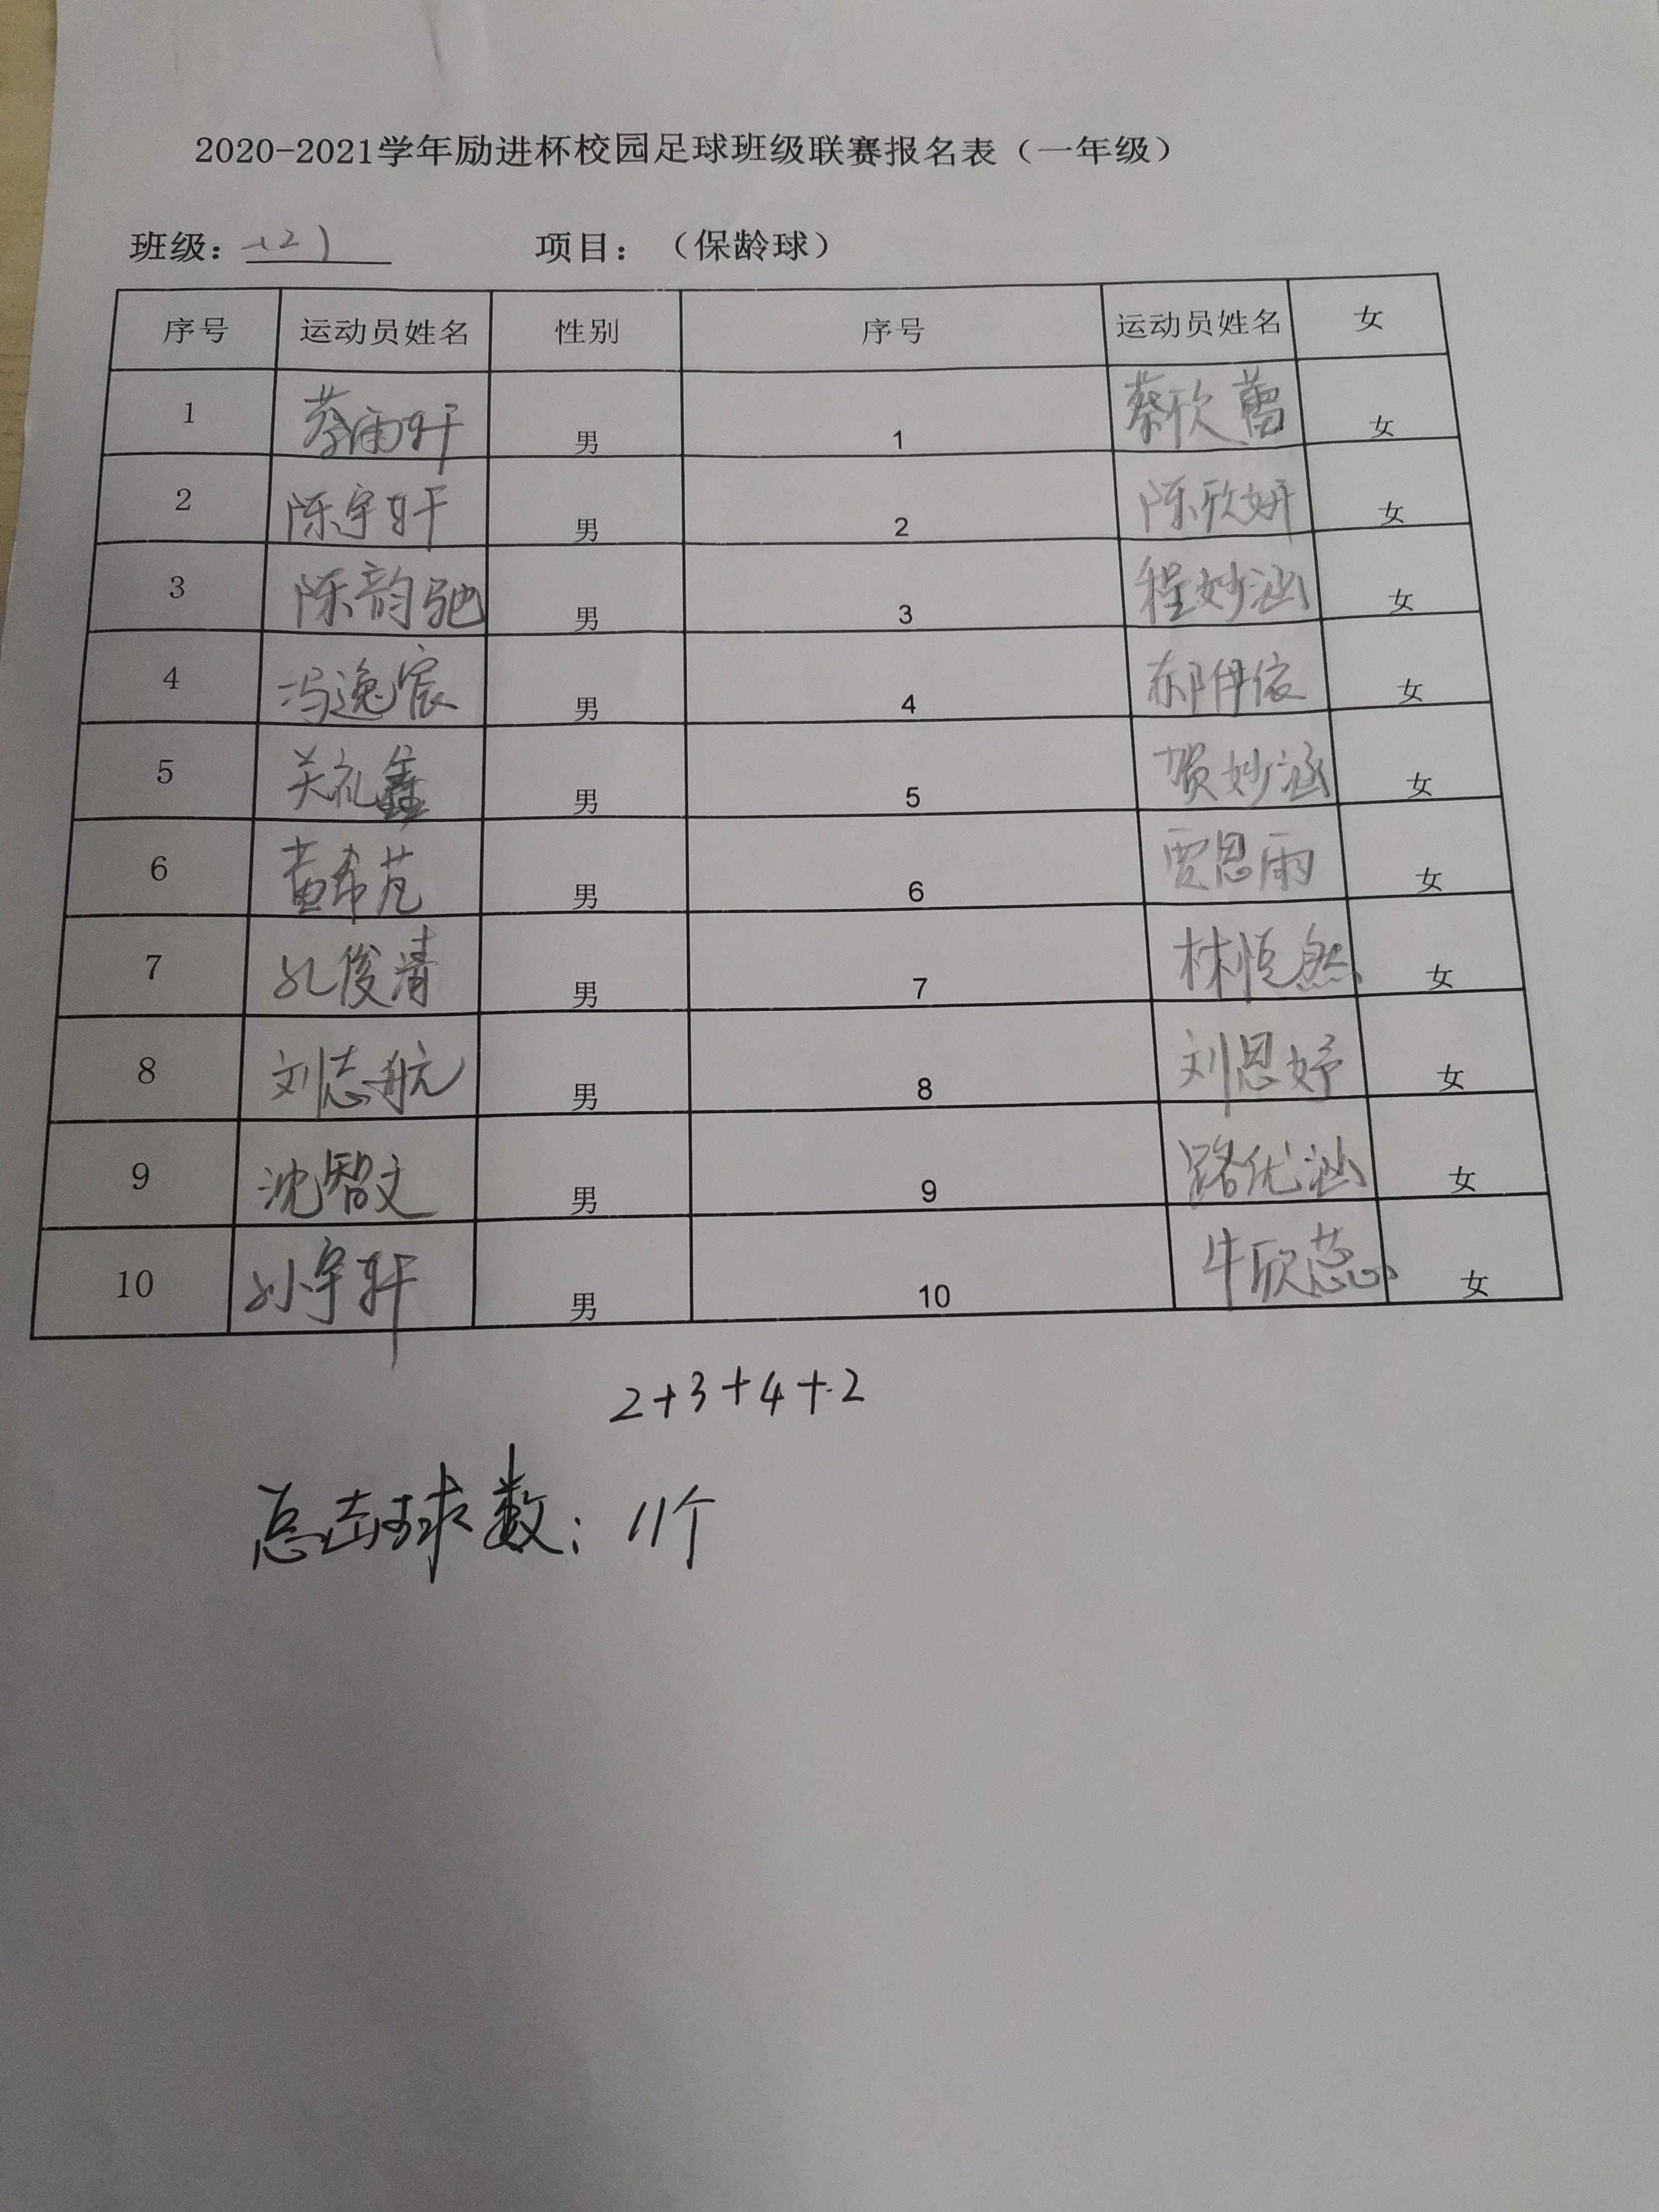 2020-2021学年励进杯校园足球班级联赛报名表（一年级）
班级：一（2） 项目：（保龄球）
序号 运动员姓名 性别 序号 运动员姓名 女
1 蔡雨轩 男 1 蔡欣蕾 女
2 陈宇轩 男 2 陈欣妍 女
3 陈韵驰 男 3 程妙涵 女
4 冯逸宸 男 4 郝伊依 女
5 关礼鑫 男 5 贺妙涵 女
6 黄希范 男 6 贾思雨 女
7 孔俊清 男 7 林恒然 女
8 刘志航 男 8 刘恩妤 女
9 沈智文 男 9 路优涵 女
10 孙宇轩 男 10 牛欣蕊 女
2+3+4+2
总击球数：11个